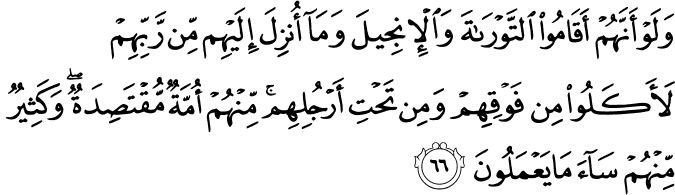 وَلَوۡ أَنَّهُمۡ أَقَامُواْ ٱلتَّوۡرَىٰةَ وَٱلۡإِنجِيلَ وَمَآ أُنزِلَ إِلَيۡهِم مِّن رَّبِّهِمۡ
لَأَكَلُواْ مِن فَوۡقِهِمۡ وَمِن تَحۡتِ أَرۡجُلِهِمۚ مِّنۡهُمۡ أُمَّةٞ مُّقۡتَصِدَةٞۖ وَكَثِيرٞ
مِّنۡهُمۡ سَآءَ مَا يَعۡمَلُونَ ٦٦